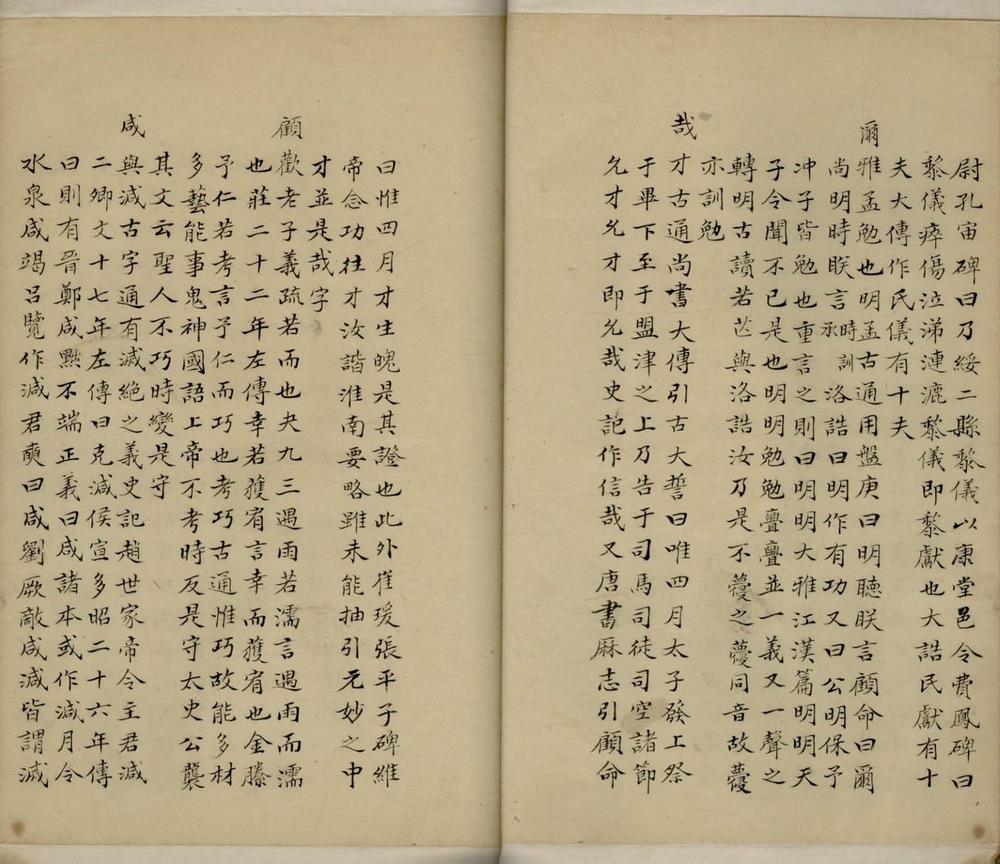 尉孔宙碑曰乃綏二縣黎儀以康堂邑令費鳳碑曰
黎儀瘁傷泣涕漣漉黎儀即黎獻也大誥民獻有十
夫大傳作民儀有十夫
爾
雅孟勉也明孟古通用盤庚曰明聽朕言顧命曰爾
尚明時朕言承時訓洛誥曰明作有功又曰公明保予
冲子皆勉也重言之則曰明明大雅江漢篇明明天
子令聞不已是也明明勉勉亹亹並一義又一聲之
轉明古讀若芒與洛誥汝乃是不蘉之蘉同音故蘉
亦訓勉
哉
才古通尚書大傳引古大誓曰唯四月太子發上祭
于畢下至于盟津之上乃告于司馬司徒司空諸節
允才允才即允哉史記作信哉又唐書厤志引顧命
曰惟四月才生魄是其證也此外崔瑗張平子碑維
帝念功往才汝諧淮南要略雖未能抽引元妙之中
才並是哉字
顧
歡老子義疏若而也夬九三遇雨若濡言遇雨而濡
也莊二十二年左傳幸若獲宥言幸而獲宥也金縢
予仁若考言予仁而巧也考巧古通惟巧故能多材
多藝能事鬼神國語上帝不考時反是守太史公襲
其文云聖人不巧時變是守
咸
與減古字通有滅絶之義史記趙世家帝令主君減
二卿文十七年左傳曰克減侯宣多昭二十六年傳
曰則有晋鄭咸黜不端正義曰咸諸本或作減月令
水泉咸竭呂覽作減君奭曰咸劉厥敵咸減皆謂滅